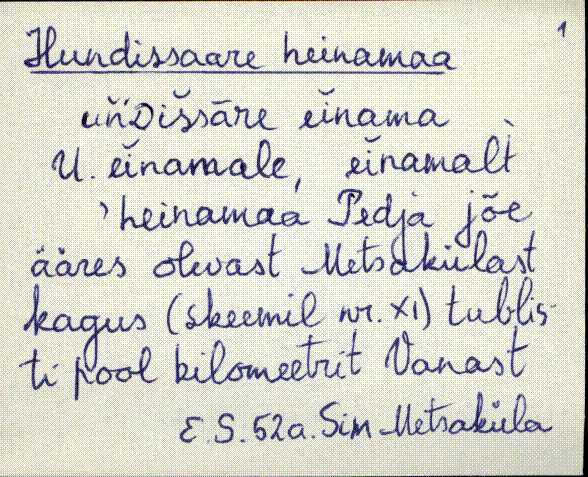 1
Hundissaare heinamaa
uň̀Dišsāre eĭnama
U. eĭnamale, eĭnamalt̀
'heinamaa Pedja jõe
ääres olevast Metsakülast
kagus (skeemil nr. XI) tublis-
ti pool kilomeetrit Vanast
E.S. 52a. Sim Metsaküla